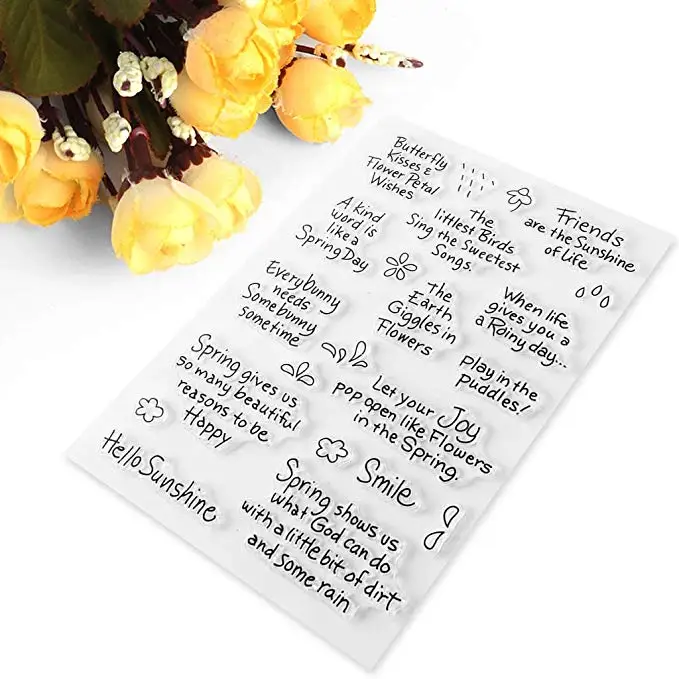 Butterfly
Kisses &
Flower Petal
Wishes
Friends
are the Sunshine
of Life
The
littlest Birds
Sing the Sweetest
Songs.
A kind
word is
like a
Spring Day
When life
gives you a
a Rainy day...
The
Earth
Giggles in
Flowers
Everybunny
needs
Somebunny
sometime
Play in the
puddles!
Let your Joy
pop open like Flowers
in the Spring.
Spring gives us
so many beautiful
reasons to be
Happy
Smile
Hello Sunshine
Spring shows us
what God can do
with a little bit of dirt
and some rain